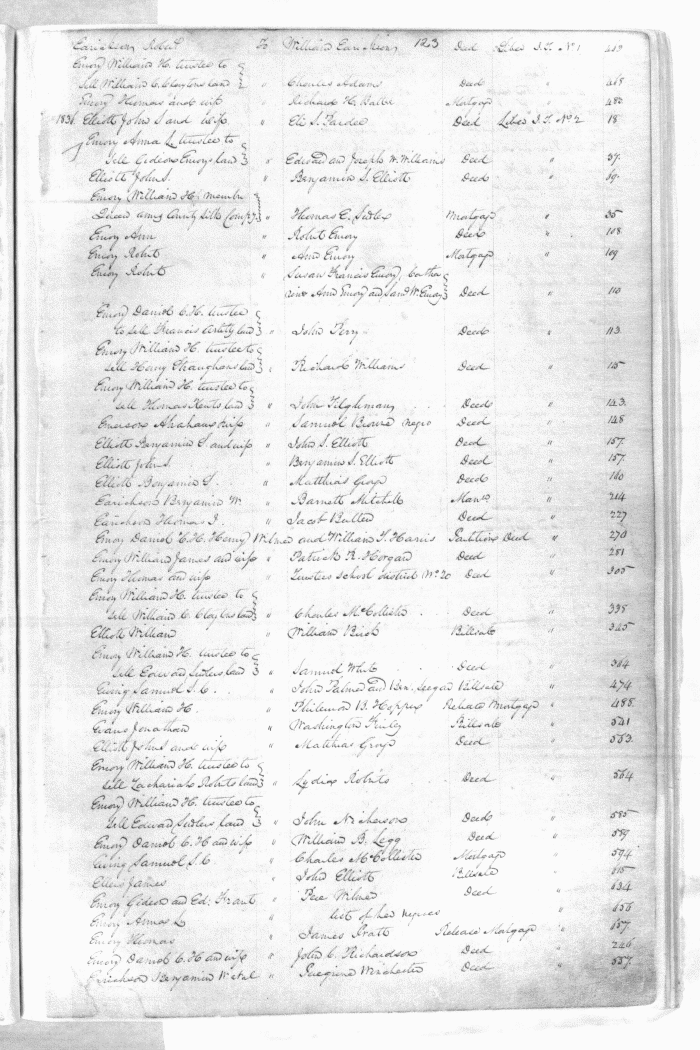 123
Earickson Robert To William Earickson Deed Liber J.T. No 1
Emory William H. trustee to
sell William C. Claytons land " Charles Adams Deed " 468
Emory Thomas and wife " Richard H. Battee Mortgage " 480
1836. Elliott John S. and wife " Eli S. Pardee Deed Liber J.T. No 2 18
Emory Anna L. trustee to
sell Gideon Emorys land " Edward and Joseph W. Williams Deed " 37.
Elliott John S. " Benjamin S. Elliott Deed " 39.
Emory William H. member
Queen Anns County Silk Comp'y " Thomas C. Mortgage " 35
Emory Ann " Robert Emory Deed " 108
Emory Robert " Ann Emory Mortgage " 109
Emory Robert " Susan Francis Emory, Catha
rine Ann Emory and W. Emory Deed " 110
Emory Daniel C. H. trustee
to sell Francis land " John Perry Deed " 113
Emory William H. trustee to
sell Henry land " Richard Williams Deed " 115
Emory William H. trustee to
sell Thomas Kents land " John Tilghman Deed " 143.
Emerson Abraham & wife " Samuel Browne negro Deed " 148
Elliott Benjamin S. and wife " John S. Elliott Deed " 157.
Elliott John S. " Benjamin S. Elliott Deed " 157
Elliott Benjamin S. " Matthias Deed " 160
Earickson Benjamin W. " Barnett Mitchell " 214
Earickson Thomas J. " Jacob Deed " 227
Emory Daniel C. H. Henry Wilmer and William T. Harris Partition Deed " 270
Emory William James and wife " Patrick K. Morgan Deed " 281
Emory Thomas and wife " Trustees school district No 20 Deed " 305
Emory William H. trustee to
sell William C. Claytons land " Charles McCollister Deed " 338
Elliott William " William Billsale " 345
Emory William H. trustee to
sell Edward land " Samuel White Deed " 364
Ewing Samuel S. C. " John Palmer and Ben. Billsale " 474
Emory William H. " Philemon B. Hopper Release Mortgage " 485
Evans Jonathan " Washington Finley Billsale " 541
Elliott John S. and wife " Matthias Deed " 553.
Emory William H. trustee to
sell Zachariah Roberts land " Lydia Roberts Deed " 564
Emory William H. trustee to
sell Edward land " John Nickerson Deed " 585
Emory Daniel C. H. and wife " William B. Legg Deed " 589
Ewing Samuel S. C. " Charles McCollister Mortgage " 594
Ellers James " John Elliott Billsale " 615
Emory Gideon and Ed. " Wilmer Deed " 634
Emory Annas L. list of her negroes " 656
Emory Thomas " James Pratt Release Mortgage " 157.
Emory Daniel C. H. and wife " John C. Richardson Deed " 246
Erickson Benjamin W. et al " Peregrine Winchester Deed " 557.